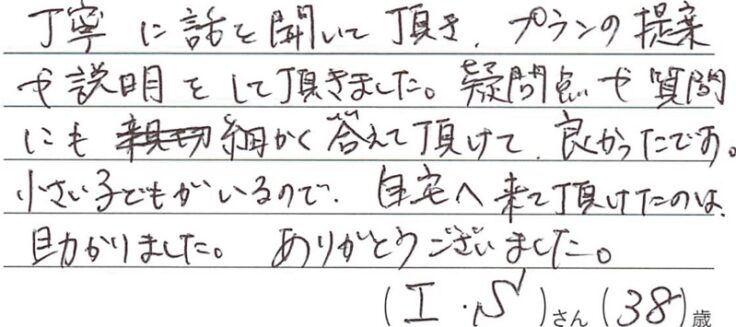 丁寧に話を聞いて頂き、プランの提案
や説明をして頂きました。疑問点や質問
にも親切細かく答えて頂けて、良かったです。
小さい子どもがいるので、自宅へ来て頂けたのは、
助かりました。ありがとうございました。
(I・S)さん(38)歳